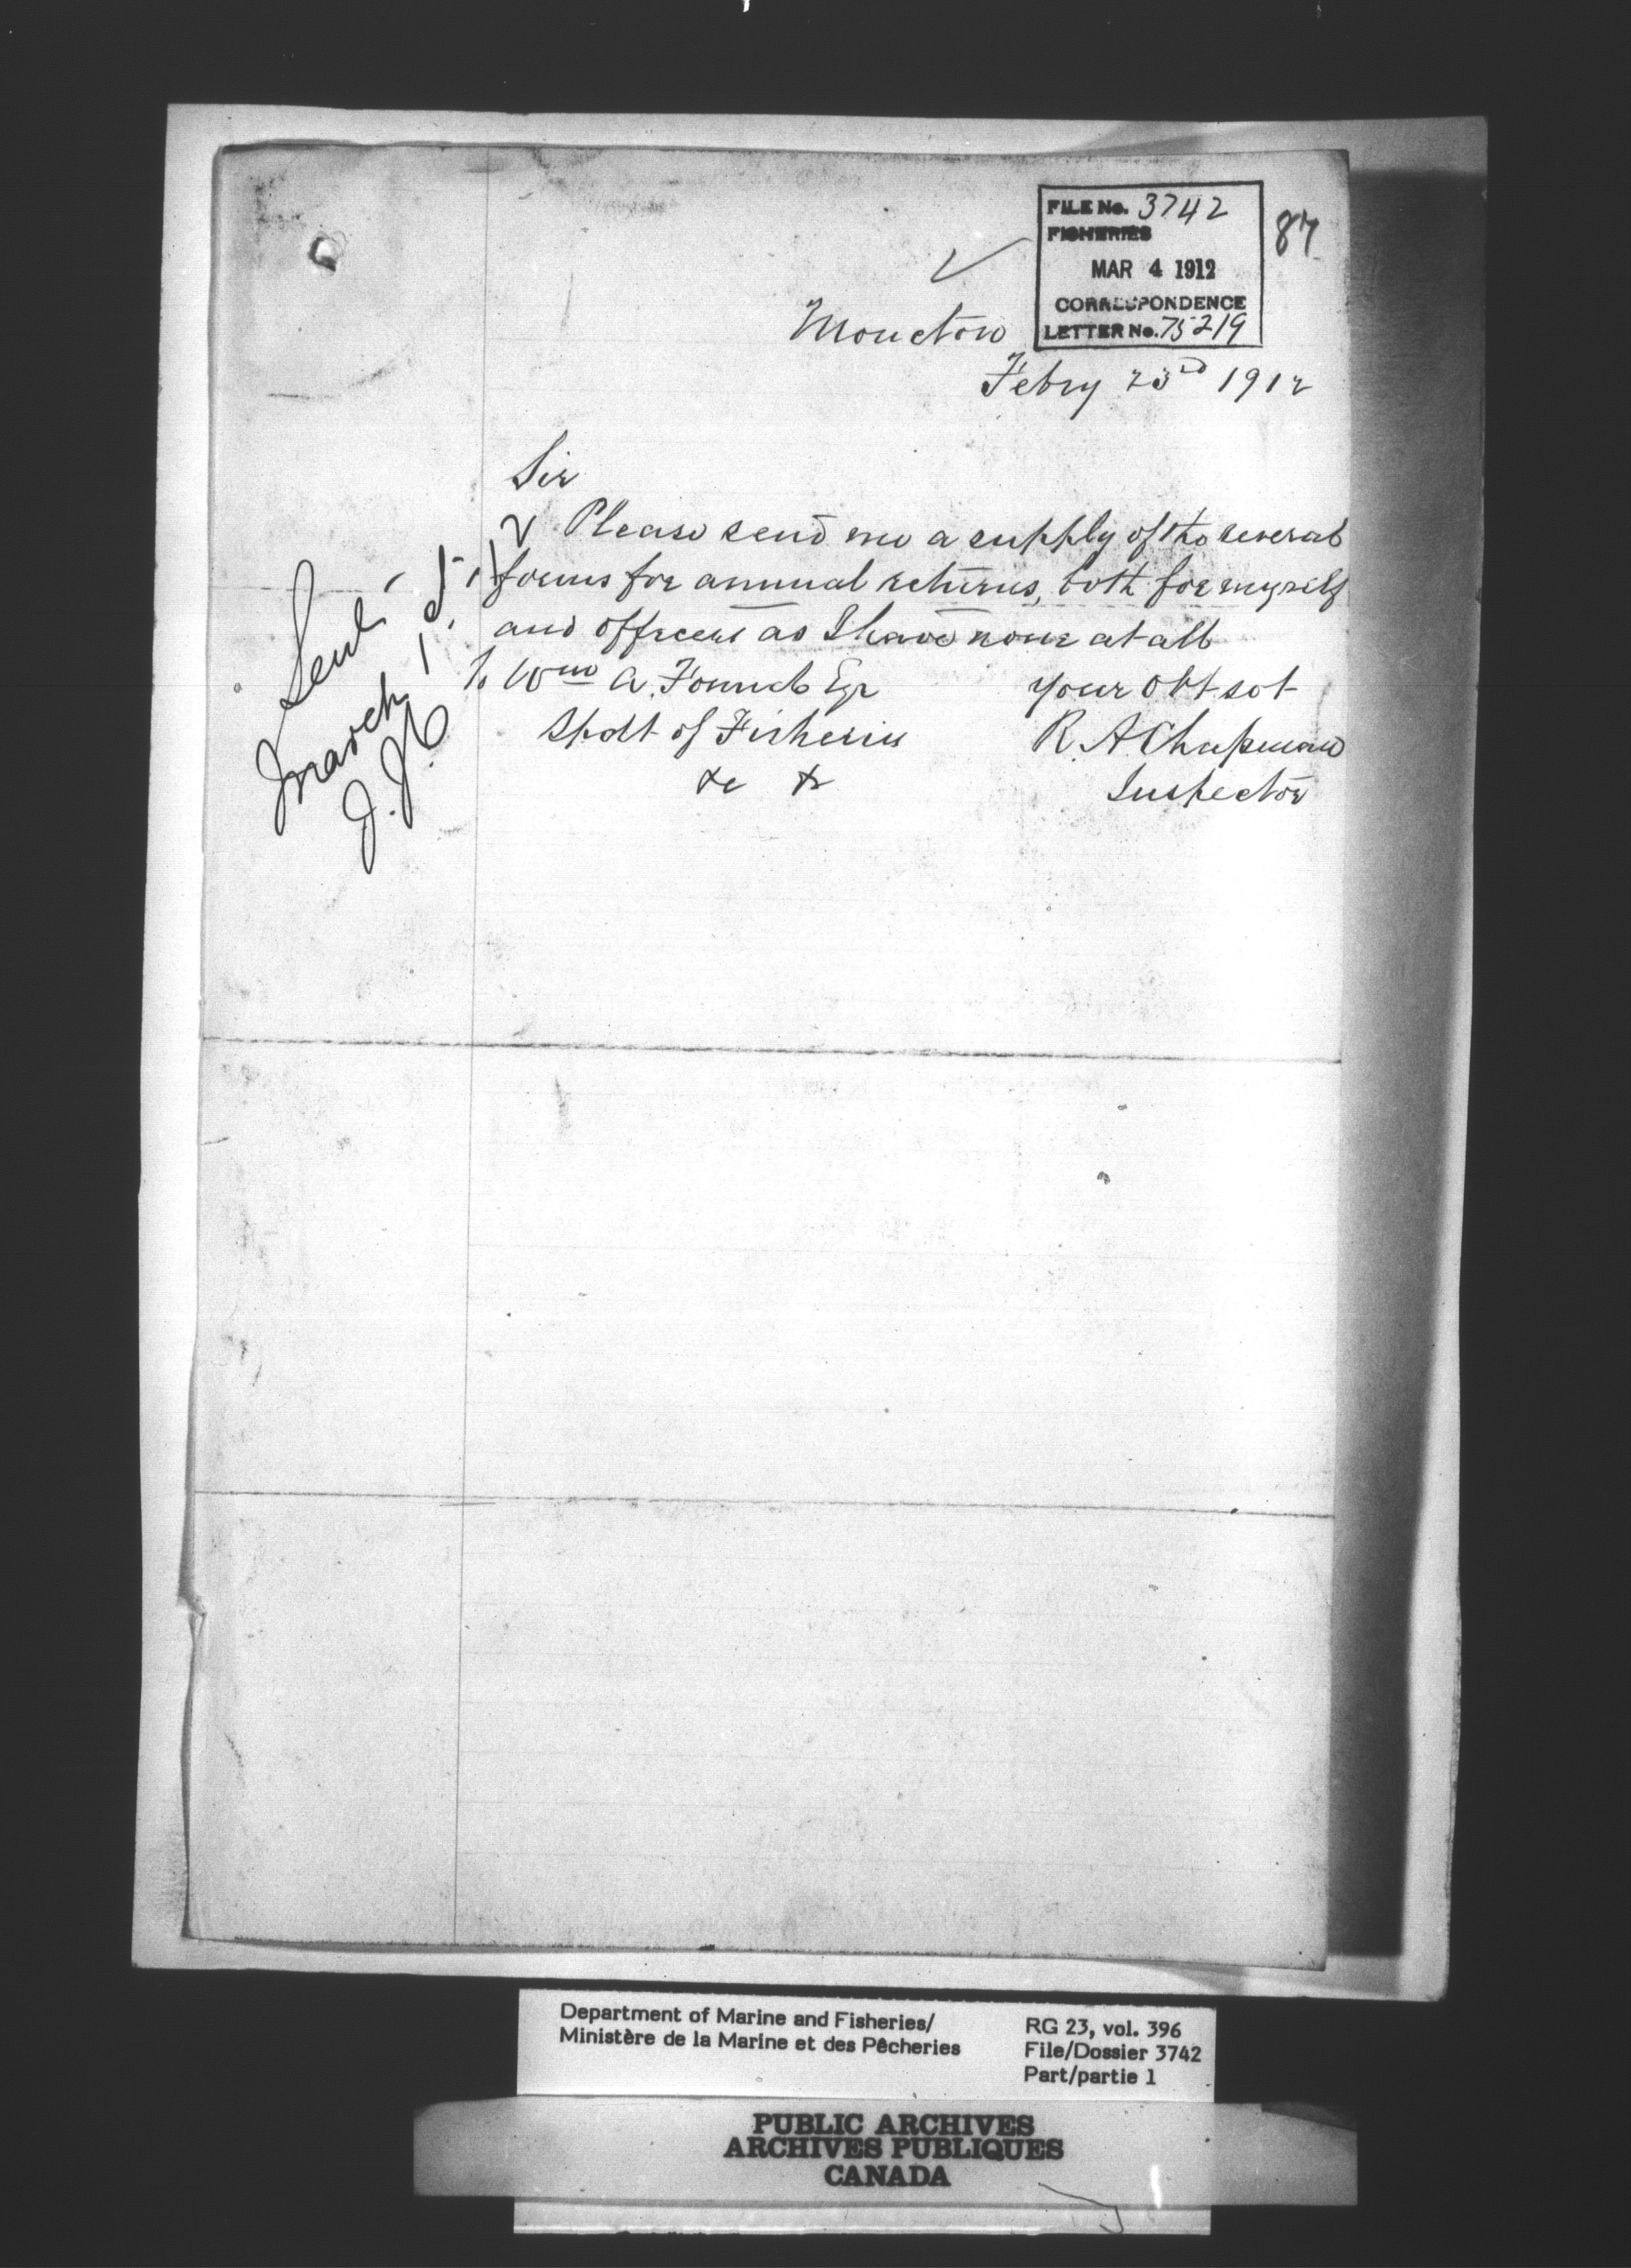 FILE No. 3742
FISHERIES
MAR 4 1912
CORRESPONDENCE
LETTER No. 75219
87
Moncton
Febry 23rd 1912
Sir
Please send me a supply of the several
forms for annual returns, both for myself
and officers as I have none at all
To Wm A. Found Esqr
Supdt of Fisheries
&c &c
Your Obt Svt
R. A. Chapman
Inspector
Sent
March
Department of Marine and Fisheries/
Ministère de la Marine et des Pêcheries
RG 23, vol. 396
File/Dossier 3742
Part/partie 1
PUBLIC ARCHIVES
ARCHIVES PUBLIQUES
CANADA